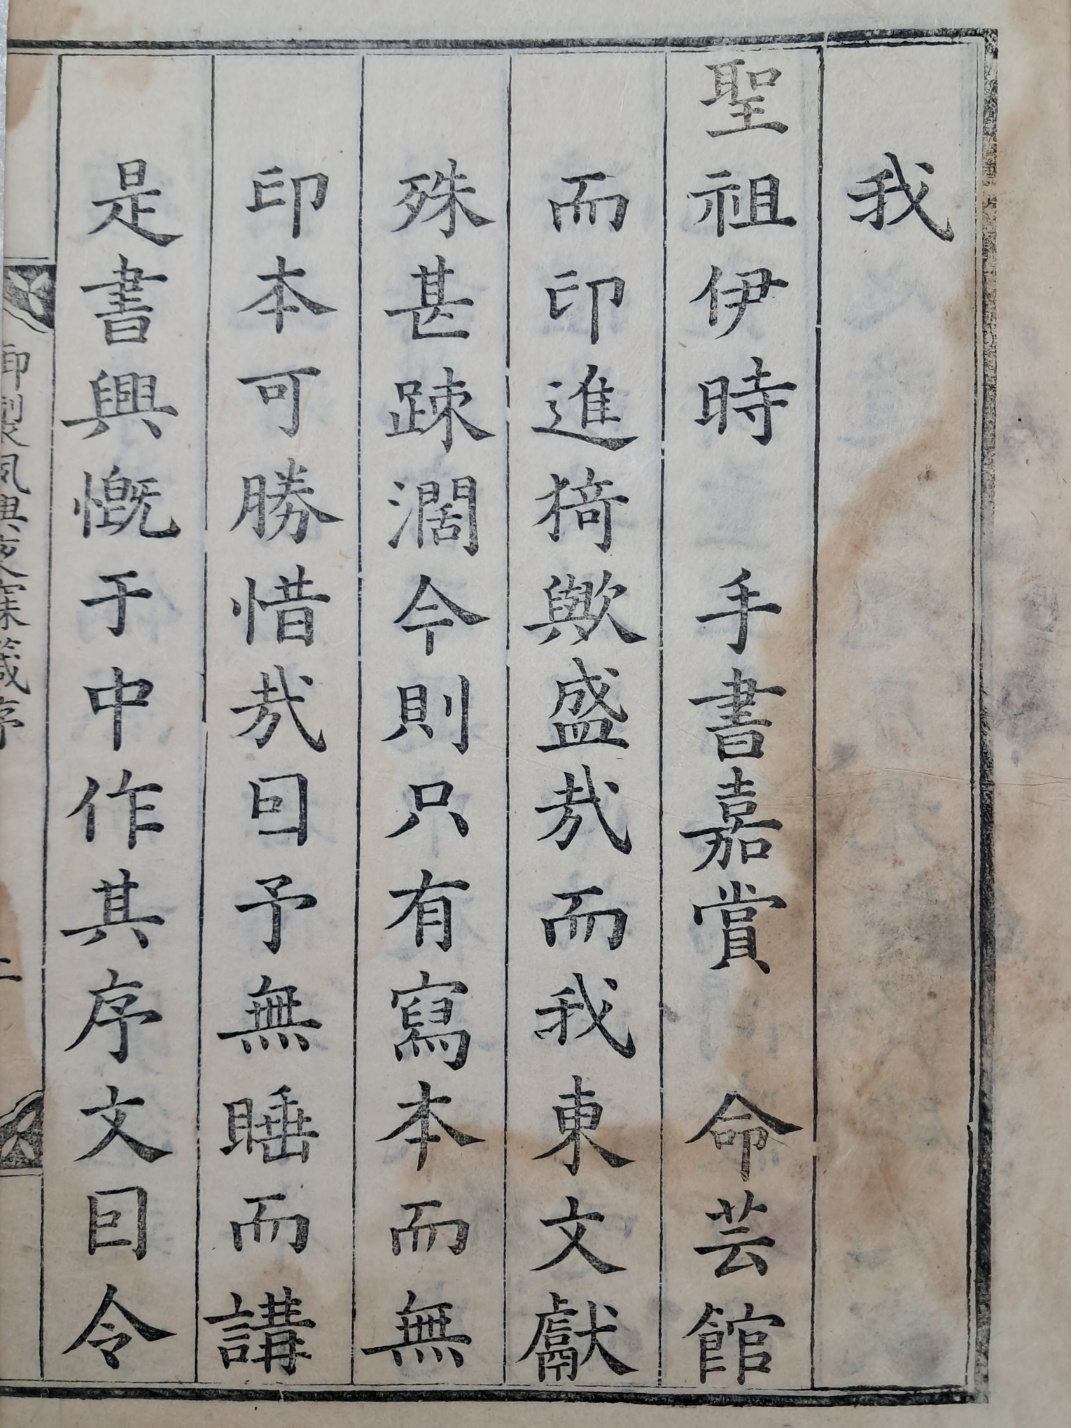 我
聖祖伊時 手書嘉賞 命芸館
而印進猗歟盛㢤而我東文獻
殊甚踈濶今則只有寫本而無
印本可勝惜㢤囙予無睡而講
是書興慨于中作其序文囙令
御製夙興夜寐箴序
二